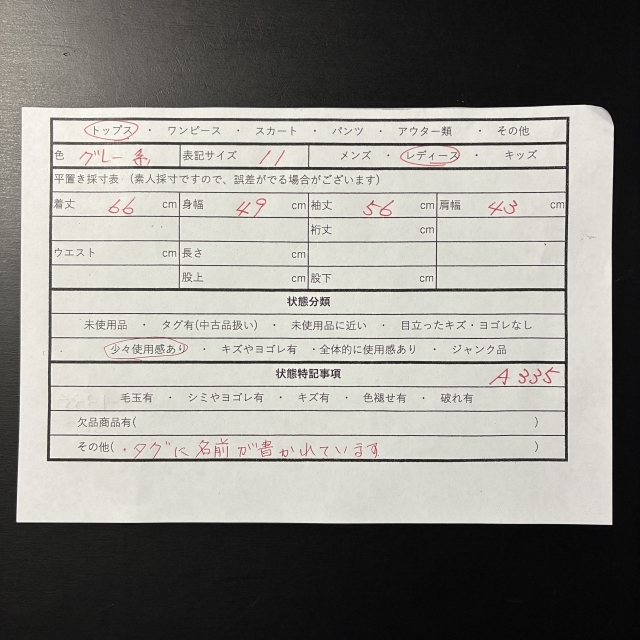 トップス ・ ワンピース ・ スカート ・ パンツ ・ アウター類 ・ その他
色 グレー系 表記サイズ 11 メンズ ・ レディース ・ キッズ
平置き採寸表 (素人採寸ですので、誤差がでる場合がございます)
着丈 66 cm 身幅 49 cm 袖丈 56 cm 肩幅 43 cm
裄丈 cm
ウエスト cm 長さ cm
股上 cm 股下 cm
状態分類
未使用品 ・ タグ有(中古品扱い) ・ 未使用品に近い ・ 目立ったキズ・ヨゴレなし
少々使用感あり ・ キズやヨゴレ有 ・全体的に使用感あり ・ ジャンク品
状態特記事項 A335
毛玉有 ・ シミやヨゴレ有 ・ キズ有 ・ 色褪せ有 ・ 破れ有
欠品商品有( )
その他( ・タグに名前が書かれています )